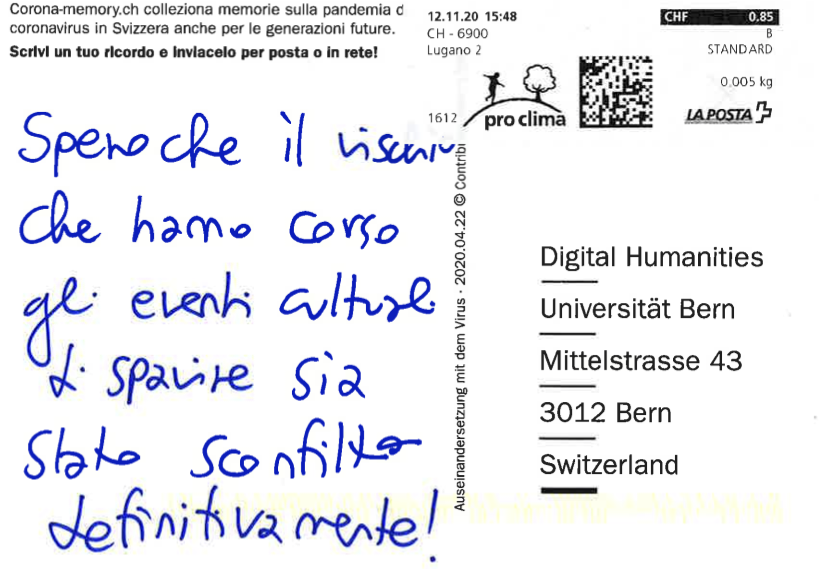 Corona-memory.ch colleziona memorie sulla pandemia d
coronavirus in Svizzera anche per le generazioni future.
Scrivi un tuo ricordo e inviacelo per posta o in rete!
12.11.20 15:48
CH - 6900
Lugano 2
1612
pro clima
CHF 0.85
B
STANDARD
0,005 kg
LA POSTA
Spero che il rischio
che hanno corso
gli eventi culturali
di sparire sia
stato sconfitto
definitivamente!
Auseinandersetzung mit dem Virus · 2020.04.22 © Contribu
Digital Humanities
Universität Bern
Mittelstrasse 43
3012 Bern
Switzerland